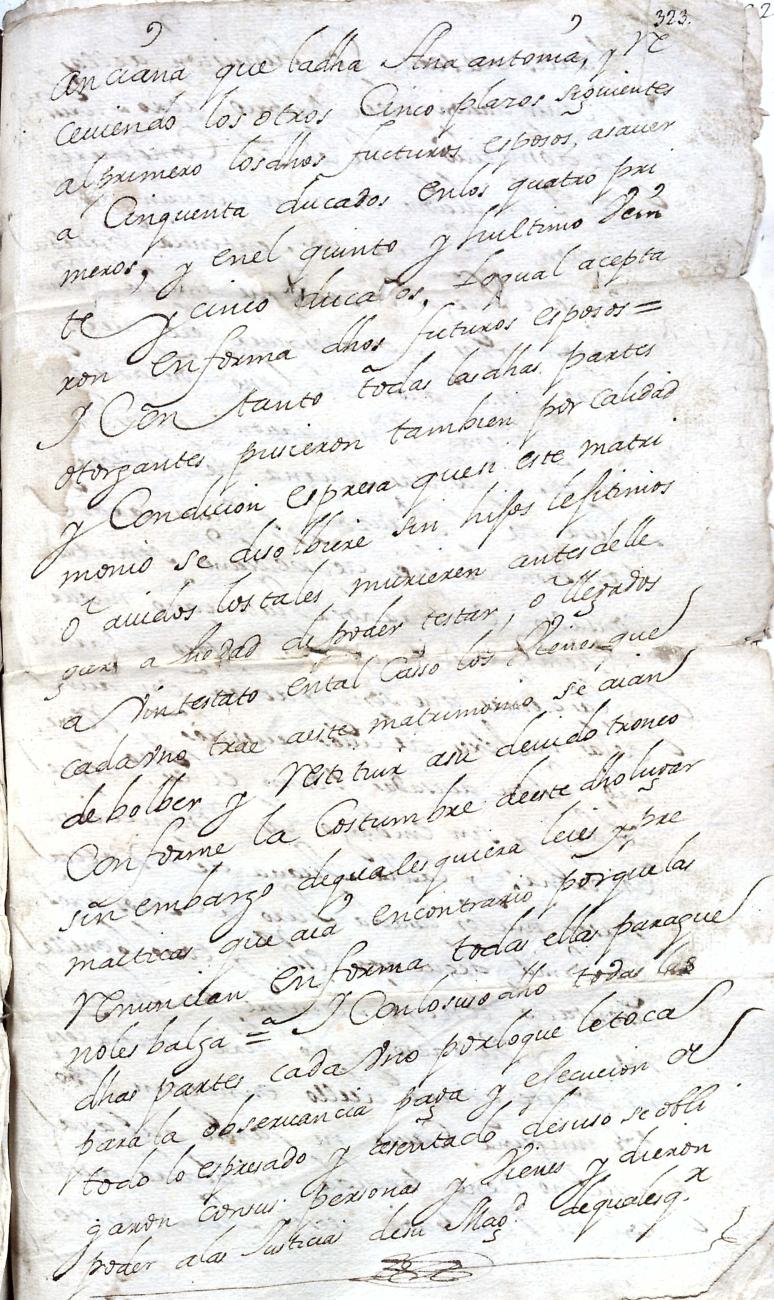 323.
anciana que la dha Ana antonia, y Re
ceviendo los otros Cinco plazos siguientes
al primero los dhos fucturos esposos, asaver
a Cinquenta ducados en los quatro pri
meros, y en el quinto y hultimo Vein
te y cinco ducados, Loqual acepta
ron en forma dhos futuros esposos=
y Con tanto todas las dhas partes
otorgantes pusieron tambien por Calidad
y Condicion espresa que si este matri
monio se disolbiere sin hijos lejitimos
o avidos los tales murieren antes de lle
gar a hedad de poder testar, o llegados
a Vintestato en tal Casso los Vienes que
cada Vno trae a este matrimonio se aian
de bolber y Restituir a su devido tronco
Conforme la Costumbre de este dho lugar
sin embargo de qualesquiera leies y pre
maticas que aia en contrario porque las
Renuncian en forma todas ellas para que
no les balga = y Con lo suso dho todas las
dhas partes cada Vno por lo que le toca
para la observancia paga y ejecucion de
todo lo espresado y asentado desuso se obli
garon con sus personas y Vienes y dieron
poder a las Justicias de su Magd de qualesqr